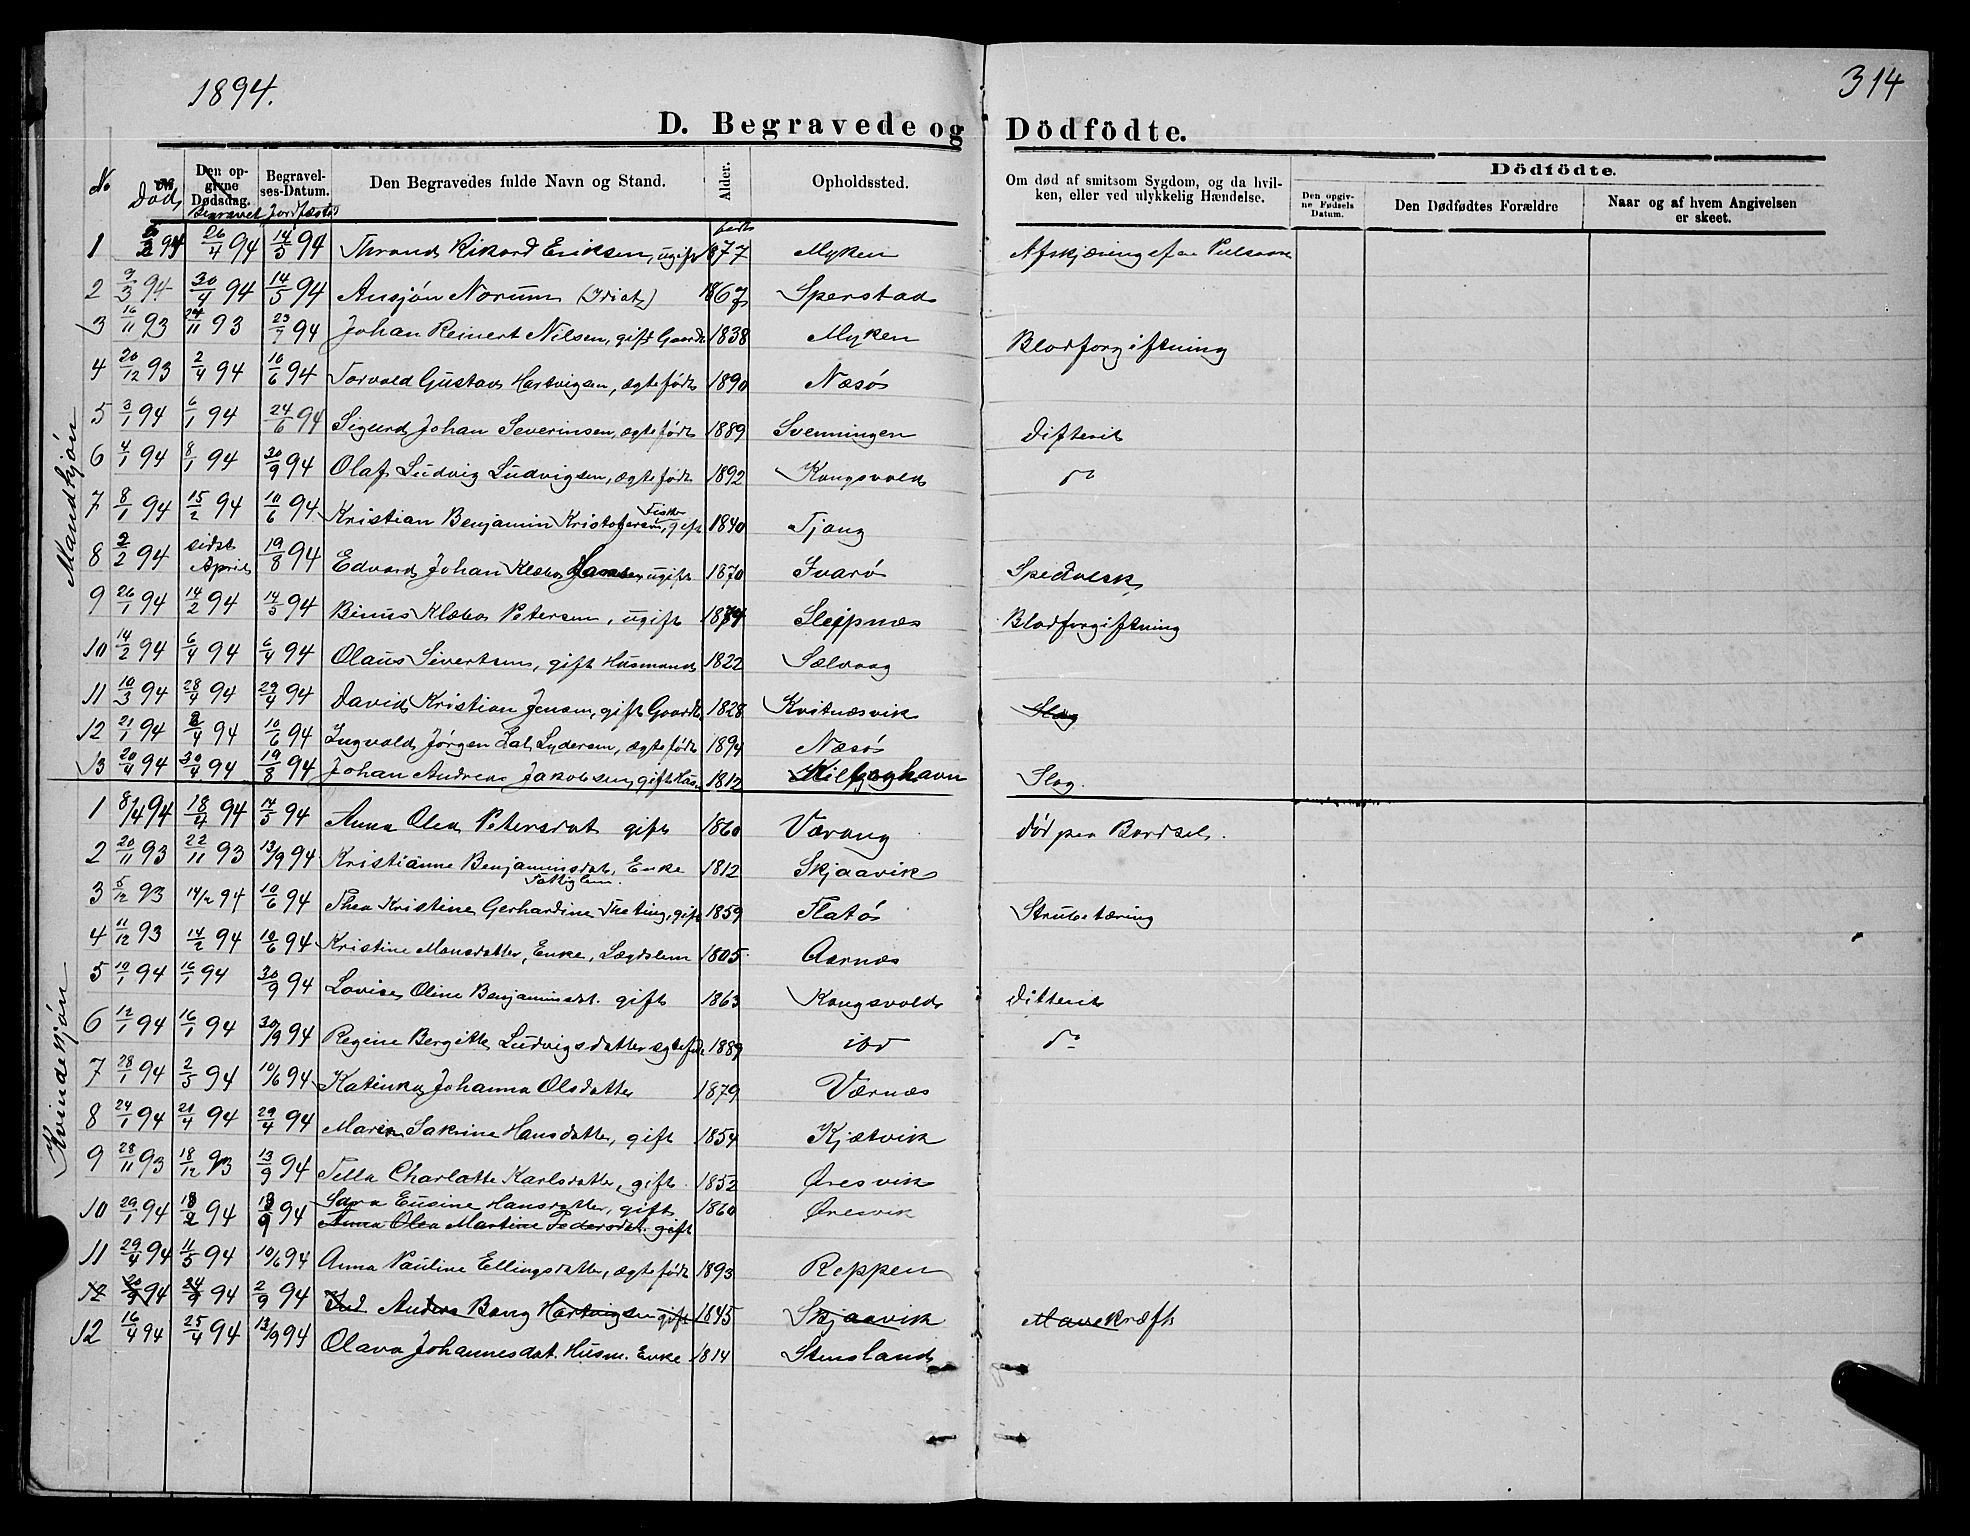 1894.
314
D. Begravede og Dödfödte.
No Död Den opgivne Dødsdag. Begravet Begravelses-Datum. Jordfæstet Den Begravedes fulde Navn og Stand. Alder. født Opholdssted. Om død af smitsom Sygdom, og da hvilken, eller ved ulykkelig Hændelse. Dödfödte. Den opgivne Fødsels Datum. Den Dødfødtes Forældre Naar og af hvem Angivelsen er skeet.
Mandkjön
1 94 26/4 94 14/5 94 Thrond Rikard Eriksen, ugift 1877 Myken Afskjæring af en Pulsaare
2 3/3 94 30/4 94 14/5 94 Ansjön Norum (Idiot) 1867 Sperstad
3 16/11 93 24/11 93 23/7 94 Johan Reinert Nilsen, gift Gaardb 1838 Myken Blodforgiftning
4 20/12 93 2/4 94 10/6 94 Torvald Gustav Hartvigsen, ægtefödt 1890 Næsö
5 3/1 94 6/1 94 24/6 94 Sigurd Johan Severinsen, ægtefödt 1889 Svenningen Difterit
6 4/1 94 8/1 94 30/9 94 Olaf Ludvig Ludvigsen, ægtefödt 1892 Kongsvold do
7 8/1 94 15/2 94 10/6 94 Kristian Benjamin Kristofersen, Fisker gift 1840 Tjong
8 2/2 94 sidst April 19/8 94 Edvard Johan Klæbo Hansen ugift 1870 Svarö Spedalsk
9 26/1 94 14/2 94 14/5 94 Benius Klæbo Petersen, ugift 1874 Sleipnes Blodforgiftning
10 14/2 94 6/4 94 6/4 94 Olaus Sivertsen, gift Husmand 1822 Selvaag
11 10/3 94 28/4 94 29/4 94 David Kristian Jensen, gift Gaardb 1828 Kvitnæsvik Slag
12 21/1 94 2/4 94 10/6 94 Ingvald Jörgen Hal Lydersen, ægtefödt 1894 Næsö
13 20/4 94 30/4 94 19/8 94 Johan Andreas Jakobsen, gift Husm 1812 Kilboghavn Slag.
Kvindekjön
1 8/4 94 18/4 94 14/5 94 Anna Olea Petersdat gift 1860 Værang död paa Barsel.
2 20/11 93 22/11 93 13/9 94 Kristianne Benjaminsdat, Enke Fattiglem. 1812 Skjaavik
3 5/12 93 14/2 94 10/6 94 Thea Kristine Gerhardine Theting, gift 1859 Flatö Strubetæring
4 11/12 93 14/2 94 10/6 94 Kristine Monsdatter, Enke, Lægdslem 1805 Aarnæs
5 10/1 94 16/1 94 30/9 94 Lovise Oline Benjaminsdat. gift 1863 Kongsvold Difterit
6 12/1 94 16/1 94 30/9 94 Regine Bergitte Ludvigsdatter ægtefödt 1889 ibd do
7 28/1 94 2/5 94 10/6 94 Katinka Johanna Olsdatter 1879 Værnæs
8 24/1 94 21/4 94 29/4 94 Maren Sakrine Hansdatter, gift 1854 Kjætvik
9 28/11 93 18/12 93 13/9 94 Tella Charlotte Karlsdatter, gift 1852 Øresvik
10 29/1 94 18/2 94 13/9 94 Sara Eusine Hansdatter, gift 1860 Øresvik
Anna Olea Martine Pedersdat. gift
11 29/4 94 11/5 94 10/6 94 Anna Pauline Ellingsdatter, ægtefödt 1893 Reppen
12 94 94 2/9 94 Anders Bang Hartvigsen gift 1845 Skjaavik Mavekræft
12 16/4 94 25/4 94 13/9 94 Olava Johannesdat. Husm. Enke 1814 Stensland